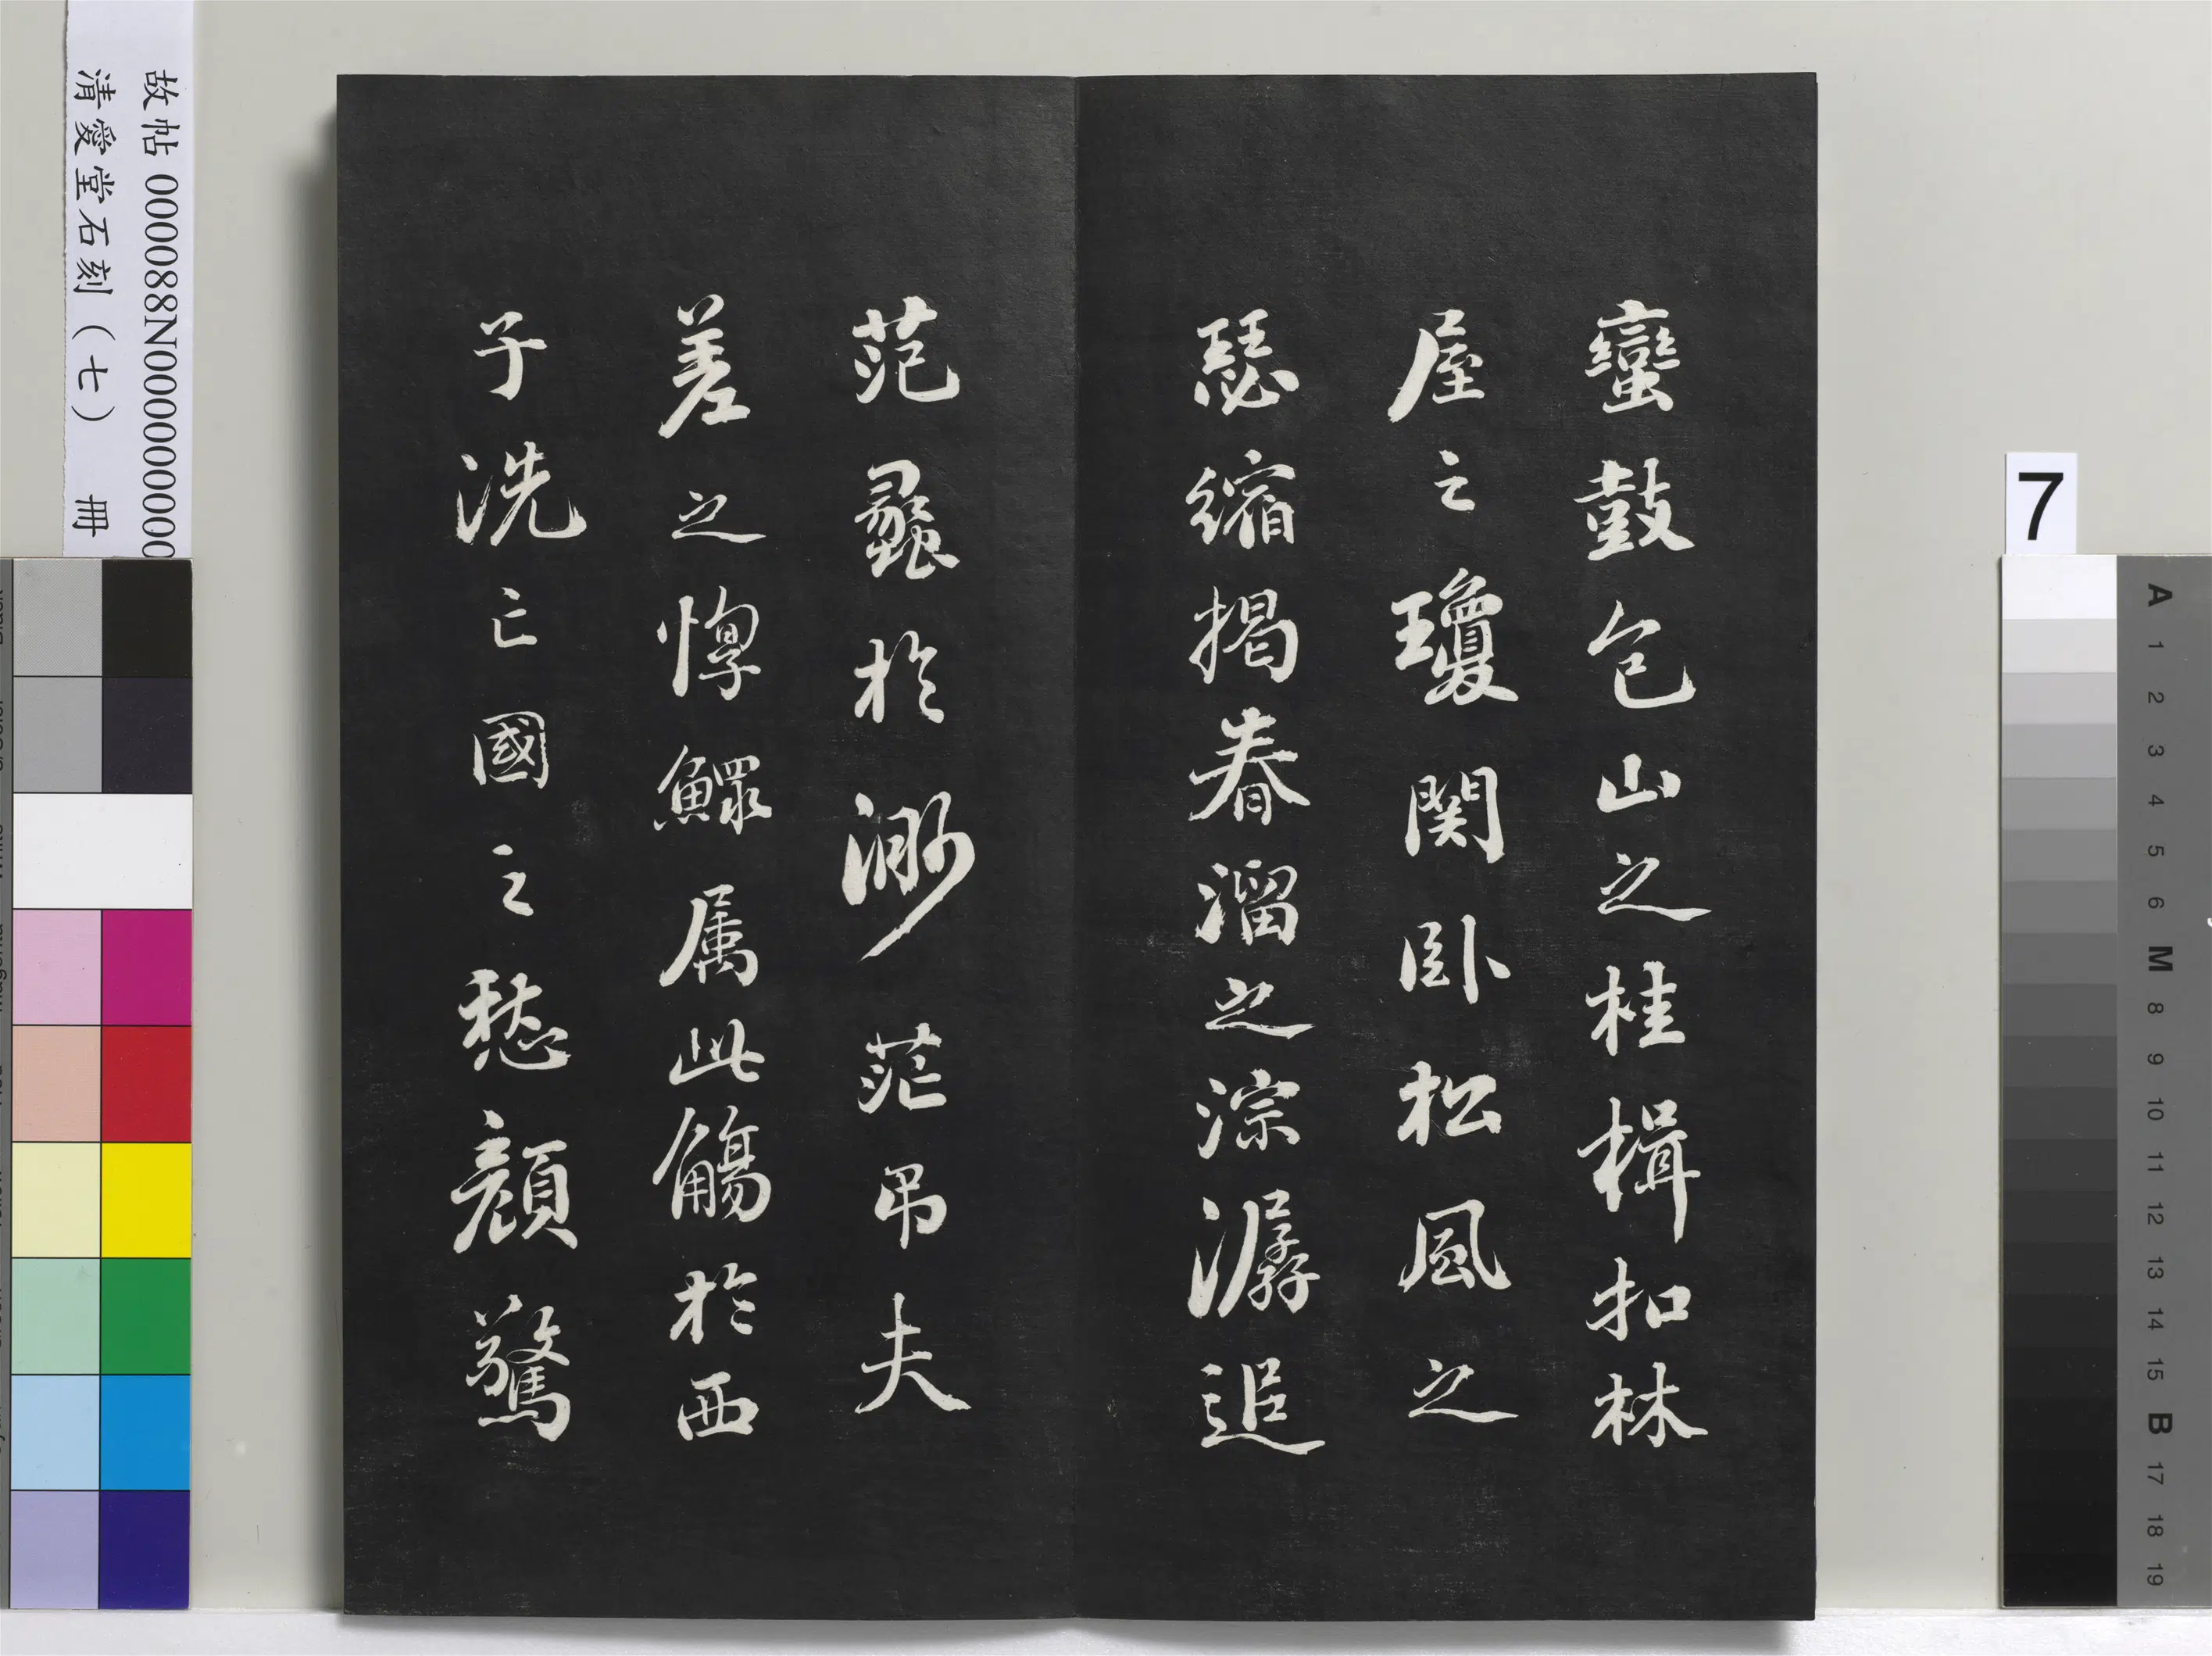 蠻鼓包山之桂楫扣林
屋之瓊関卧松風之
瑟縮揭春溜之淙潺追
范蠡於渺茫吊夫
差之惸鰥属此觴於西
子洗亡國之愁顏驚
故帖 000088N000000000
清愛堂石刻（七） 冊
7
A 1 2 3 4 5 6 M 8 9 10 11 12 13 14 15 B 17 18 19